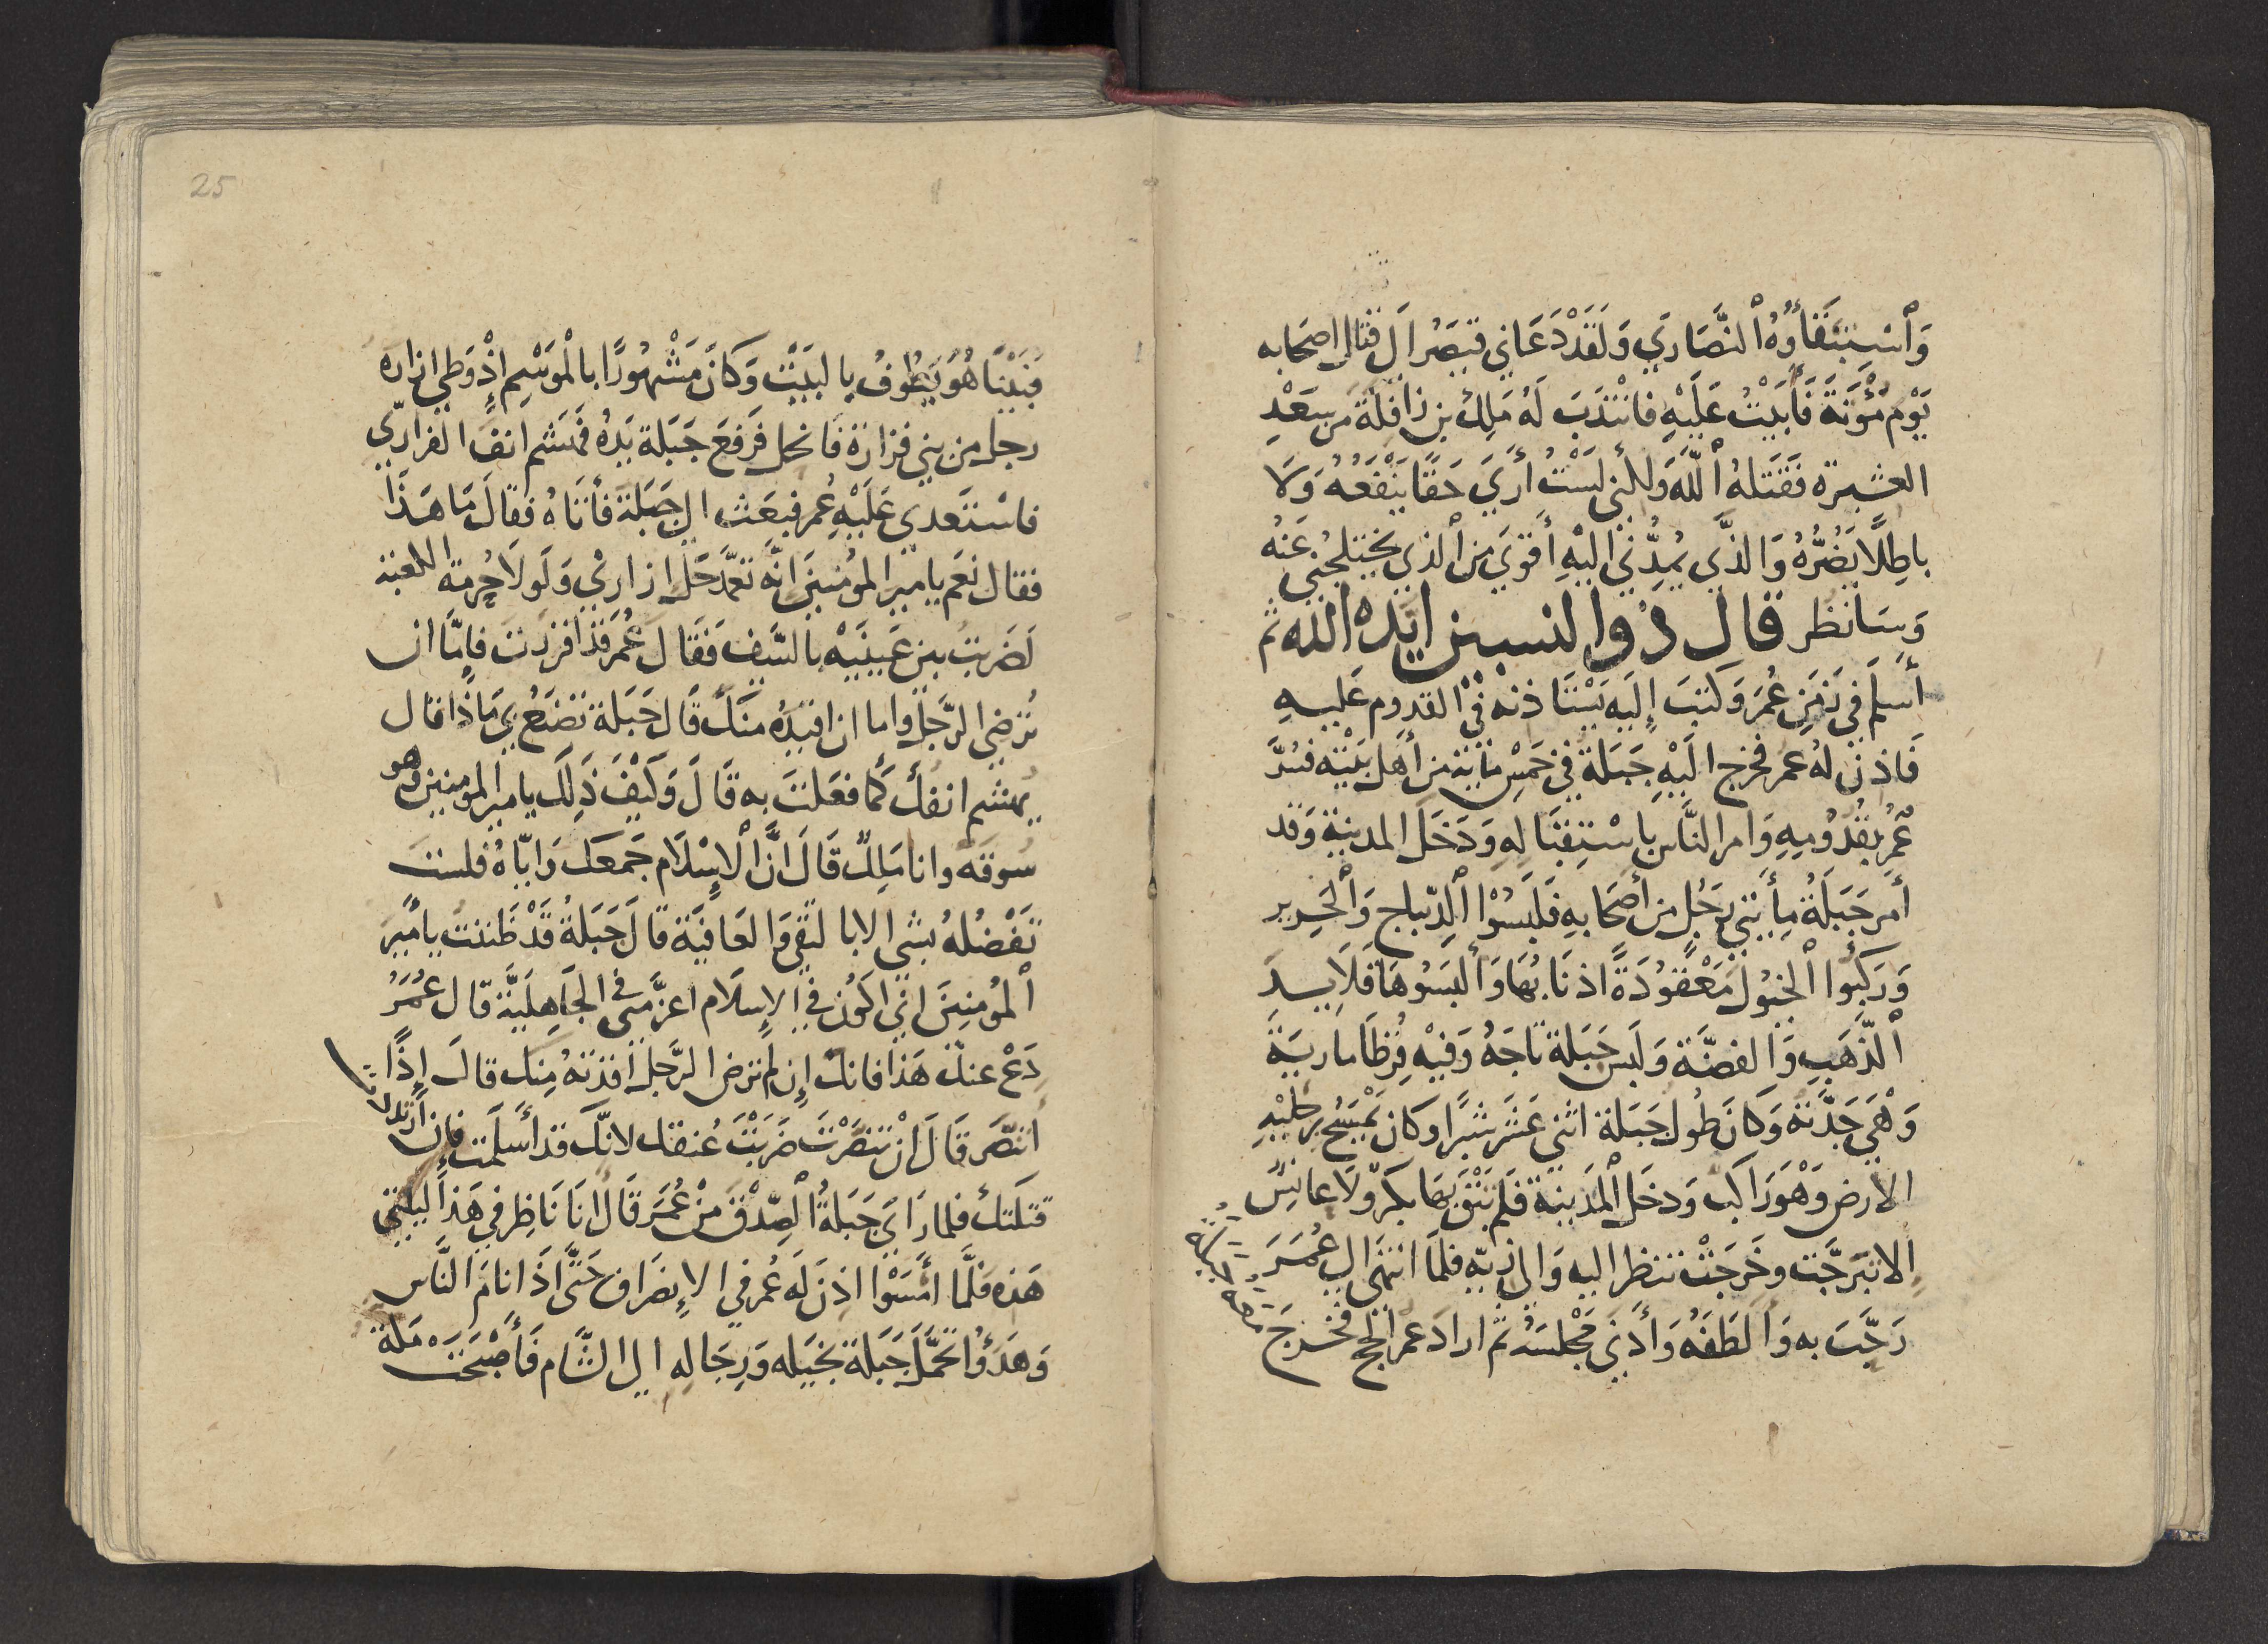 وَٱسْتِبْقَاؤُهُ ٱلنَّصَارَي وَلَقَدْ دَعَانِي قيصَرُ الَي قتال اصحابه
يَوْم مُؤْتَةَ فَأَبَيْتُ عَلَيْهِ فانْتَدَبَ لَهُ مَلِكُ بن زافلة من سَعْدِ
العشيرة فَقَتَلهُ ٱللَّه وَلكني لَسْتُ أرَي حَقًا يَنْفَعُهُ وَلَا
باطِلًا يَضُرُّهُ وَالذَّي يَمُدُّنِي اليْهِ أقوَي مِن ٱلذي يختلجُني عَنْه
وَسَانظر قال ذُوا لنسبين ايَّده الله ثم
أسلَم في زَمَنِ عُمَرَ وَكتبَ إلَيهِ يَسْتَاذنه فِي القدوم عَليهِ
فَاذنَ لهُ عمر فخرج اليْهِ جَبَلَة في خمْس مايَة من أَهل بَيْتِه فسُرَّ
عُمَر بقُدُومِهِ وَامر النَّاس باسْتِقبَالِهِ وَدَخَلَ المدينة وَقد
أمر جَبَلَةُ مِأيَتي رَجُلٍ من أصحَابهِ فَلَبسُوْا ٱلدِّيباج وَٱلحَرِير
وَرَكبُوا ٱلخيُولَ مَعْقُودَةً اذنابُهَا وَألبَسُوهَا قلايدَ
ٱلذَّهَبِ وَالفضَّة وَلَبسَ جَبَلة تاجَهُ وَفيْهِ قُرْطَا مارِيَةَ
وَهْيَ جَدَّتهُ وَكانَ طُول جَبَلة اثني عَشر شبْرًا وكان يمْسَحُ برجليْهِ
الارض وَهْوَ رَاكب وَدخَل ٱلمَدينة فلم يَبْق بهَا بكرٌ وَلَا عانِسٌ
الا تبَرجَّت وخَرجَتْ تنظر اليه وَالي زيّه فلمَا انتهَى الي عُمَرَ
رَحَّبَ به وَالطَفَهُ وَأدْنَي مَجْلسَهُ ثم اراد عمر الحج فخرجَ
فبَيْنَا هُوَ يَطُوفُ بالبيْت وَكانَ مَشْهُورًا بالْمَوْسِم إذْ وَطي ازاره
رجل من بني فزارَة فانحل فَرفعَ جَبَلة يَدهُ فهَشم انفَ الفزاريّ
فاسْتعدي عَلَيْهِ عُمر فبَعَث الي جَبَلة فأتاهُ فقالَ مَا هَذَا
فقال نَعَم يا مير المؤمنينَ انَّه تعمَّد حَلَّ ازاري وَلَولَا حُرمة الكعبة
لَضَربتُ بين عَينَيْه بالسَّيف فقَال عُمَر قد اقررت فإمَّا ان
تُرْضي الرَّجُل واما ان اقيدهُ منكَ قال جَبَلة تصْنَع بي مَاذا قال
يهشم انفكَ كما فعَلتَ به قَال وَكيْفَ ذلكَ يا مير المومنين وَهو
سُوقة وانا مَلِكٌ قَالَ انَّ ٱلاِسْلَام جَمعَك وَايّاهُ فلست
تفْضُلهُ بشي الا بالتقي وَالعَافيَة قالَ جَبَلةُ قَدْ ظَننتُ يا مير
ٱلمُؤمنِينَ اني اكوُن في الاِسلَام اعزَّ مني في الجَاهِليَّة قال عُمَرُ
دَعْ عنكَ هَذا فانك إن لم ترض الرَّجل اقدْتهُ مِنك قالَ إذًا
أَتَنَصَّر قَال ان تنصَّرْتَ ضَرَبْتُ عُنقك لانَّك قد أسلمت فإن ارتددت
قتلتك فلما رَاي جَبَلةُ ٱلصِّدْق منْ عُمَر قَال انَا نَاظِر في هَذا ليلتي
هَذه فلَّما أمسَوْا اذنَ لَه عُمر في الاِنصرَاف حَتَّى اذَا نامَ النَّاس
وَهَدَؤُا تحمَّل جَبَلة بخيله وَرِجَاله الي الشَّام فَأصْبَحَت مَكة